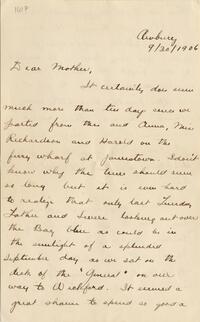 Awbury
9/20/1906
Dear Mother,
It certainly does seem
much more than ten days since we
parted from thee and Anna, Miss
Richardson and Harold on the
ferry wharf at Jamestown. I don't
know why the time should seem
so long but it is even hard
to realize that only last Tuesday
Father and I were looking out over
the Bay blue as could be in
the sunlight of a splendid
September day as we sat on the
deck of the "General" on our
way to Wickford. It seemed a
great shame to spend so good a